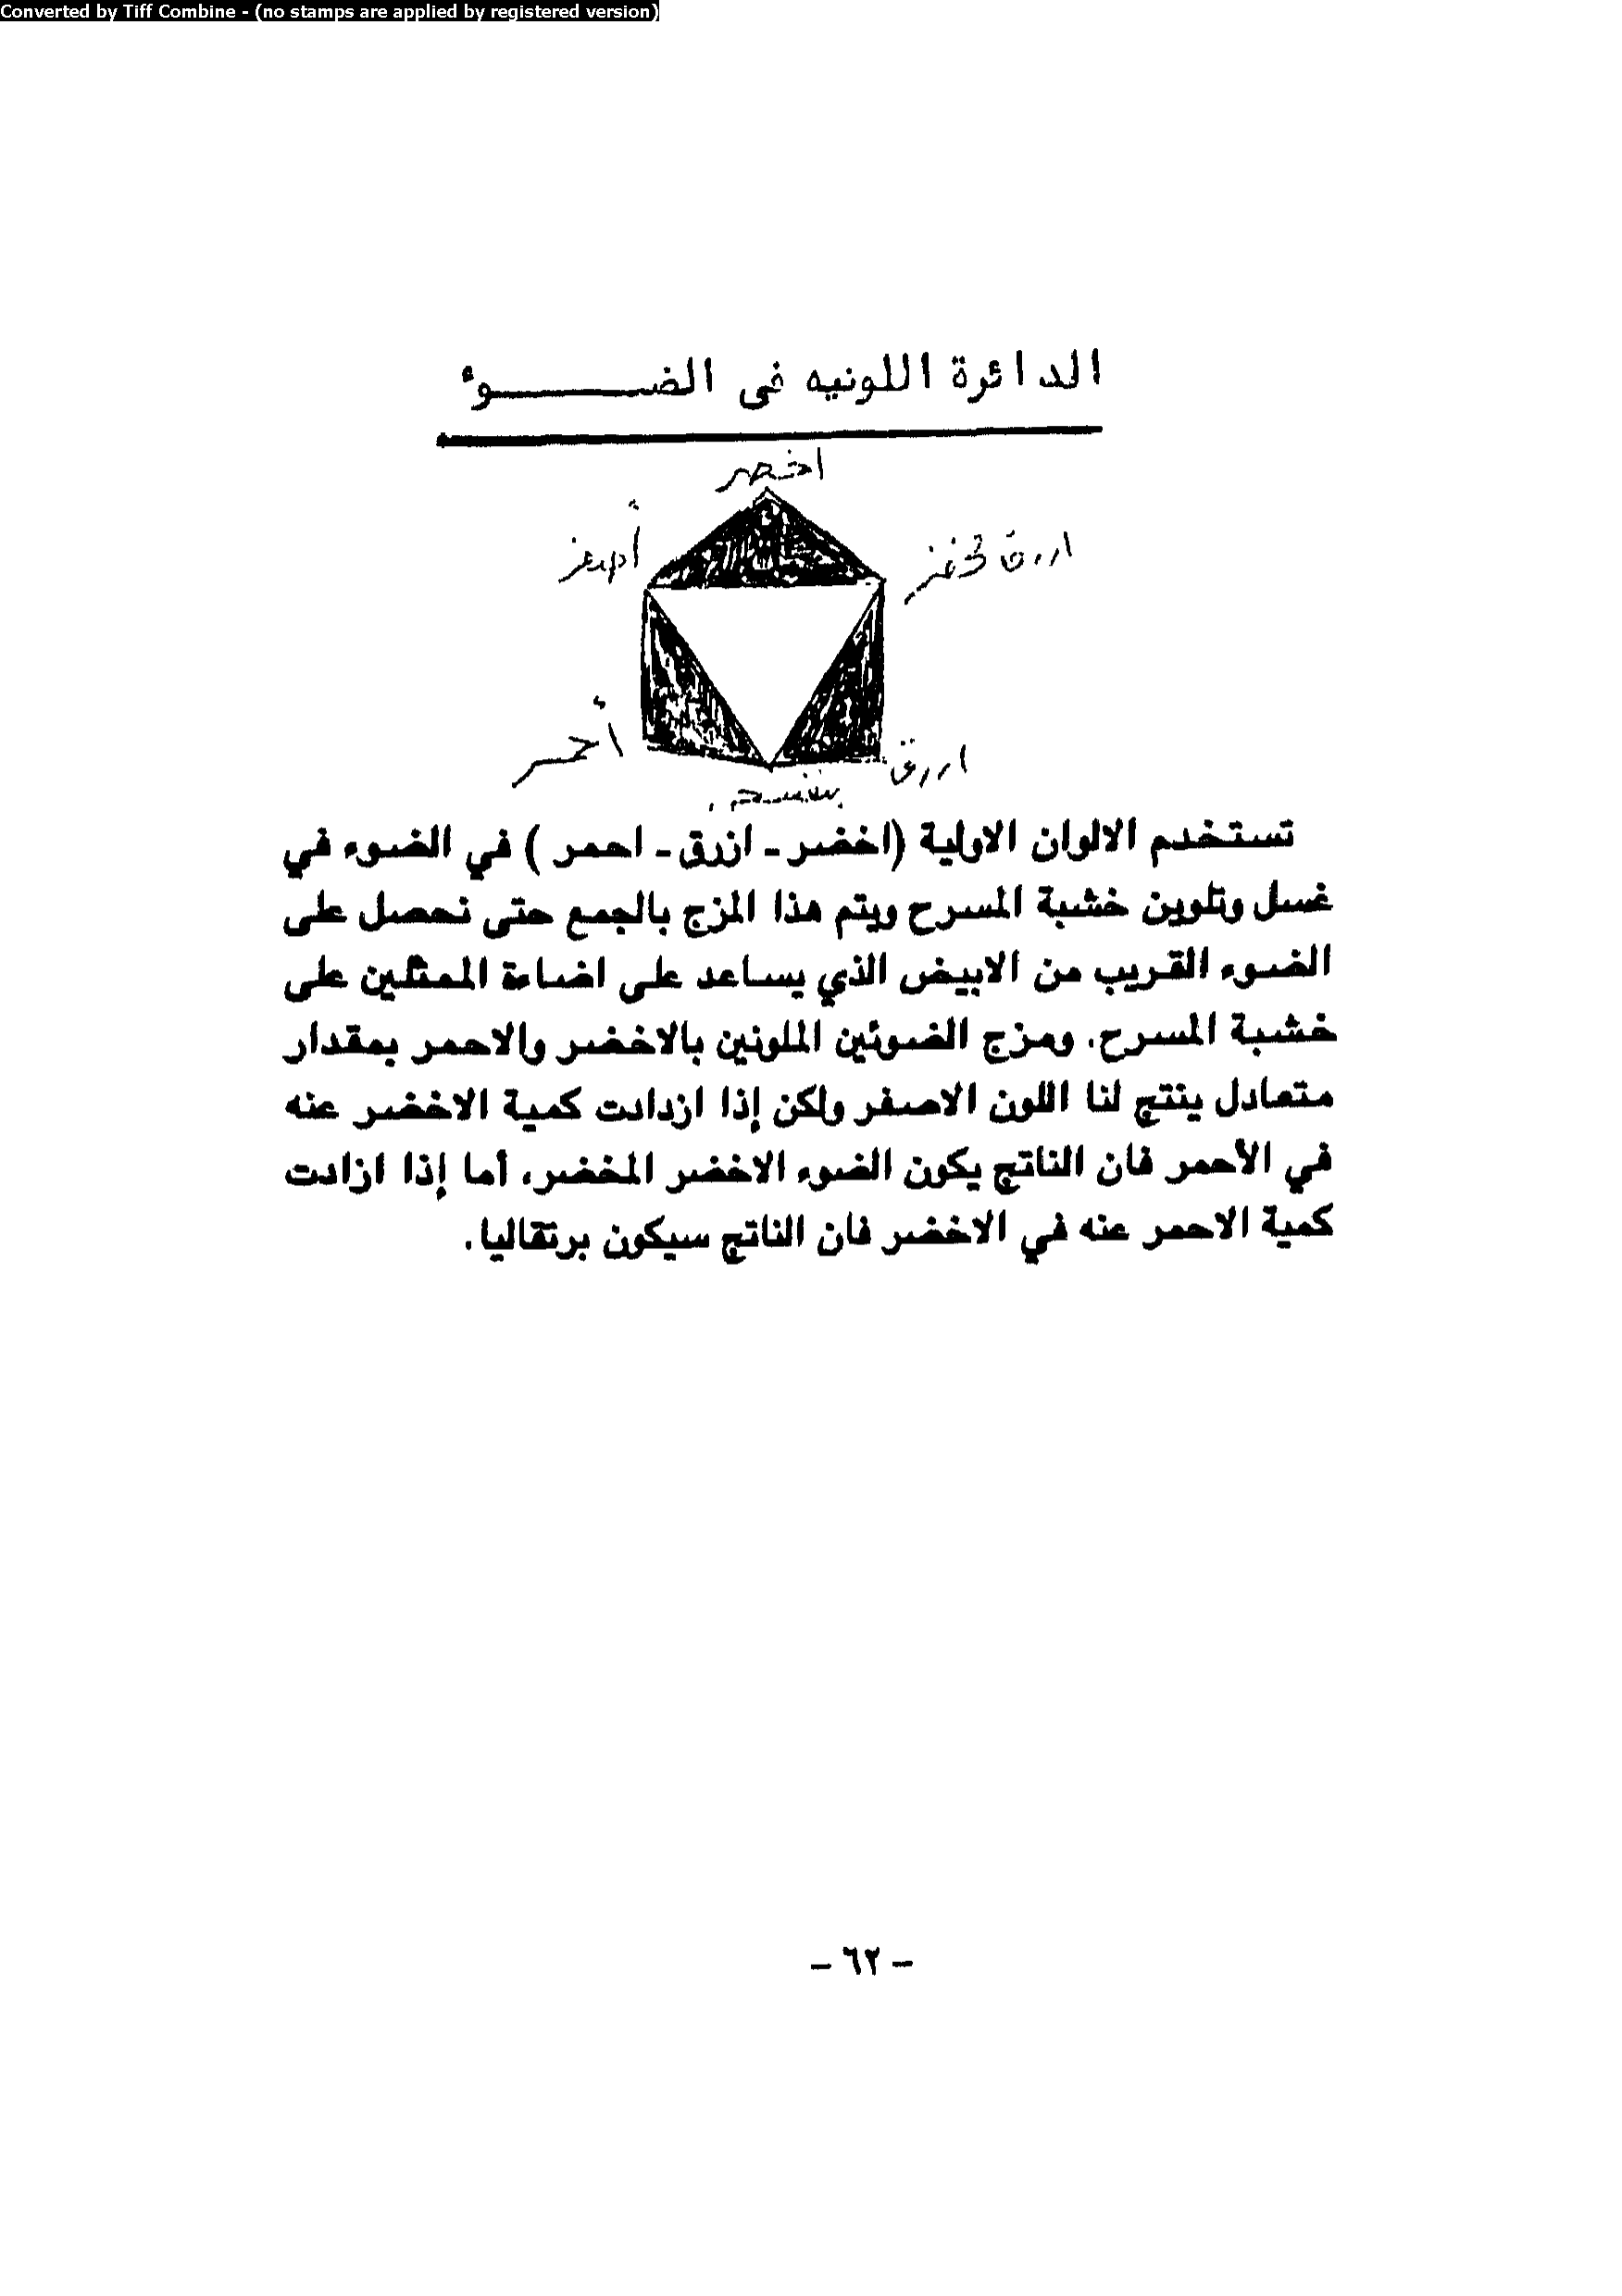 Converted by Tiff Combine - (no stamps are applied by registered version)
الدائرة اللونيه فى الضـــــوء
اخضر
أصفر
ازرق مخضر
أحمر
ازرق
بنفسجي
تستخدم الالوان الاولية (اخضر - ازرق - احمر ) في الضوء في
غسل وتلوين خشبة المسرح ويتم هذا المزج بالجمع حتى نحصل على
الضوء القريب من الابيض الذي يساعد على اضاءة الممثلين على
خشبة المسرح. ومزج الضوئين الملونين بالاخضر والاحمر بمقدار
متعادل ينتج لنا اللون الاصفر ولكن إذا ازدادت كمية الاخضر عنه
في الأحمر فان الناتج يكون الضوء الاخضر المخضر، أما إذا ازادت
كمية الاحمر عنه في الاخضر فان الناتج سيكون برتقاليا.
- ٦٢ -